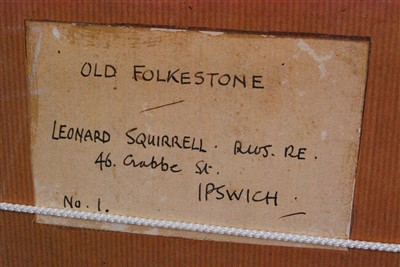 OLD FOLKESTONE
LEONARD SQUIRRELL. RWS. RE.
46. Crabbe St.
IPSWICH.
No. 1.